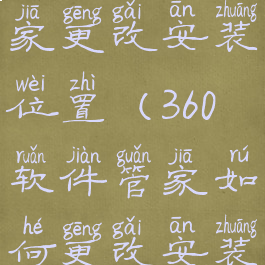 jiā gēng gǎi ān zhuāng
家更改安装
wèi zhì
位置（360
ruǎn jiàn guǎn jiā rú
软件管家如
hé gēng gǎi ān zhuāng
何更改安装